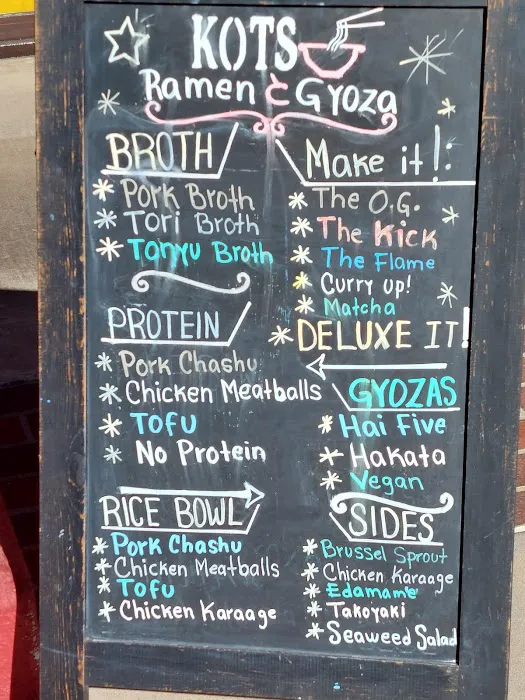 KOTS
Ramen & Gyoza
BROTH
* Pork Broth
* Tori Broth
* Tonyu Broth
PROTEIN
* Pork Chashu
* Chicken Meatballs
* Tofu
* No Protein
RICE BOWL
* Pork Chashu
* Chicken Meatballs
* Tofu
* Chicken Karaage
Make it!:
* The O.G.
* The Kick
* The Flame
* Curry up!
* Matcha
* DELUXE IT!
GYOZAS
* Hai Five
* Hakata
* Vegan
SIDES
* Brussel Sprout
* Chicken Karaage
* Edamame
* Takoyaki
* Seaweed Salad